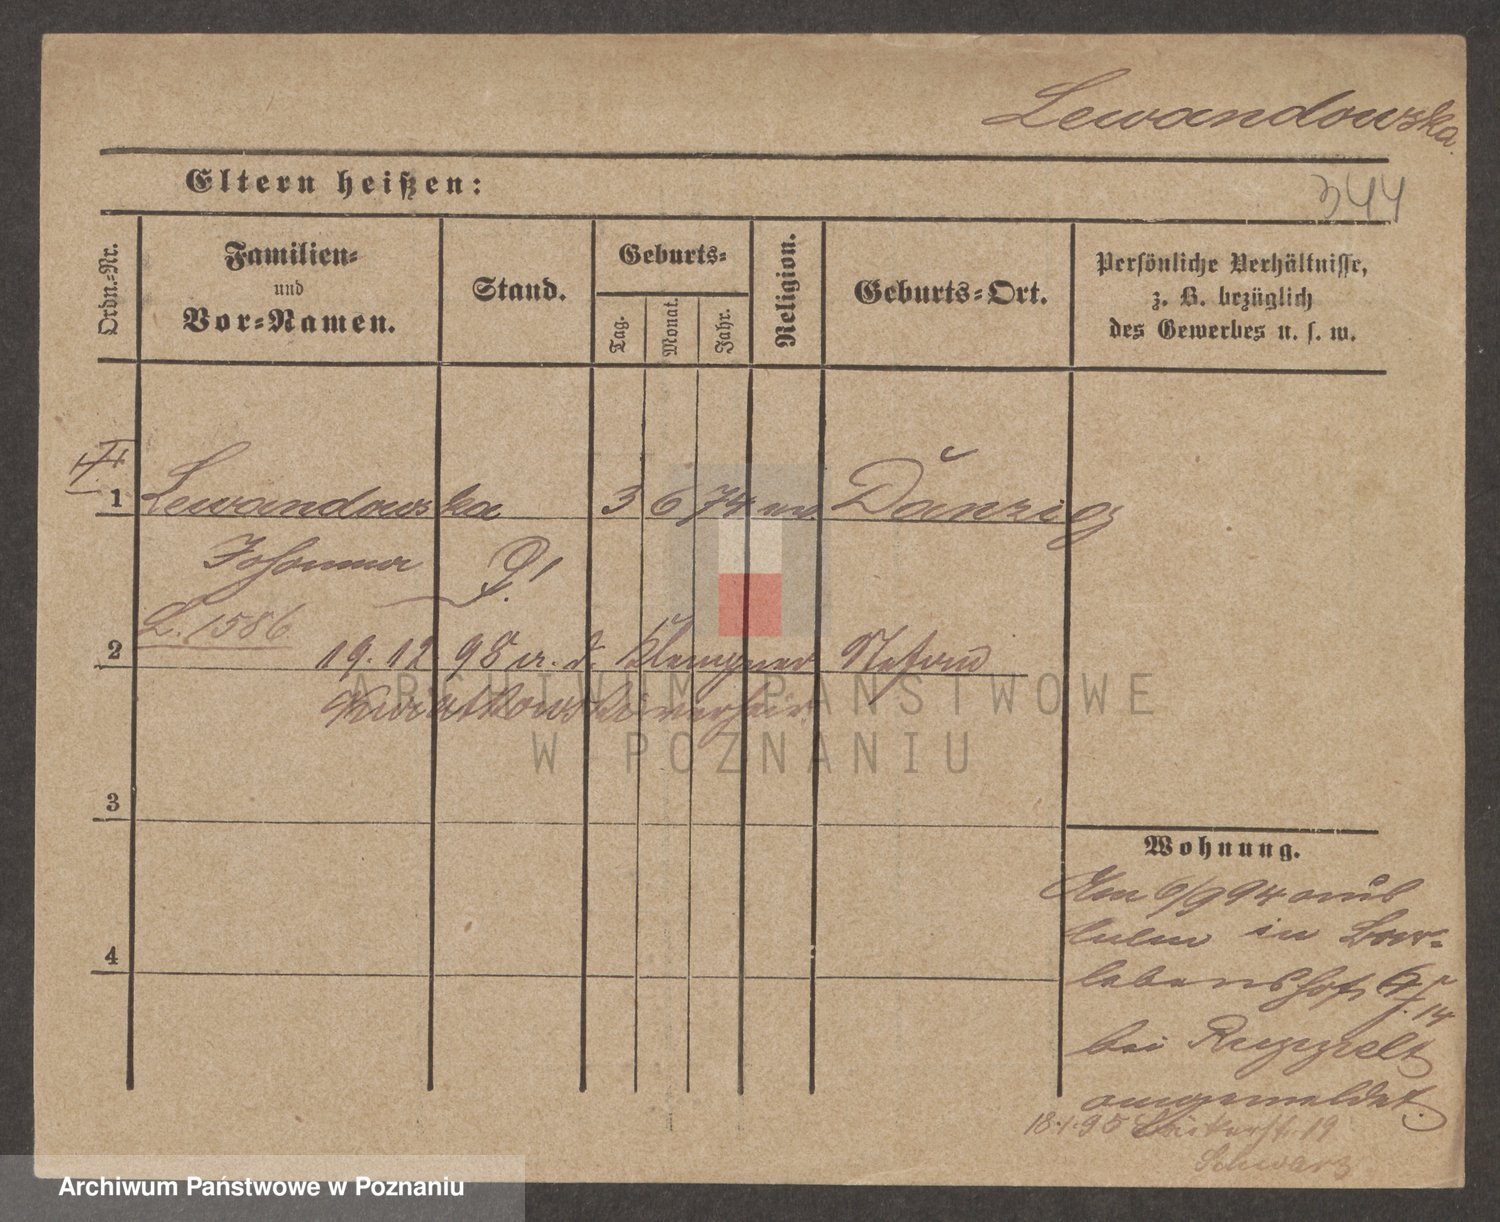 Lewandowska.
Eltern heißen:
344
Ordn.-Nr.
Familien-
und
Vor-Namen.
Stand.
Geburts-
Tag.
Monat.
Jahr.
Religion.
Geburts-Ort.
Persönliche Verhältnisse,
z. B. bezüglich
des Gewerbes u. s. w.
1 Lewandowska 3 6 74 Danzig
Johanna
L. 1586
2 19. 12 95 a. d. Klempner
ARCHIWUM PAŃSTWOWE
W POZNANIU
3
Wohnung.
Am 6/9 94 aus
in
4
bei
angemeldet.
18.1.95 19
Schwarz
Archiwum Państwowe w Poznaniu